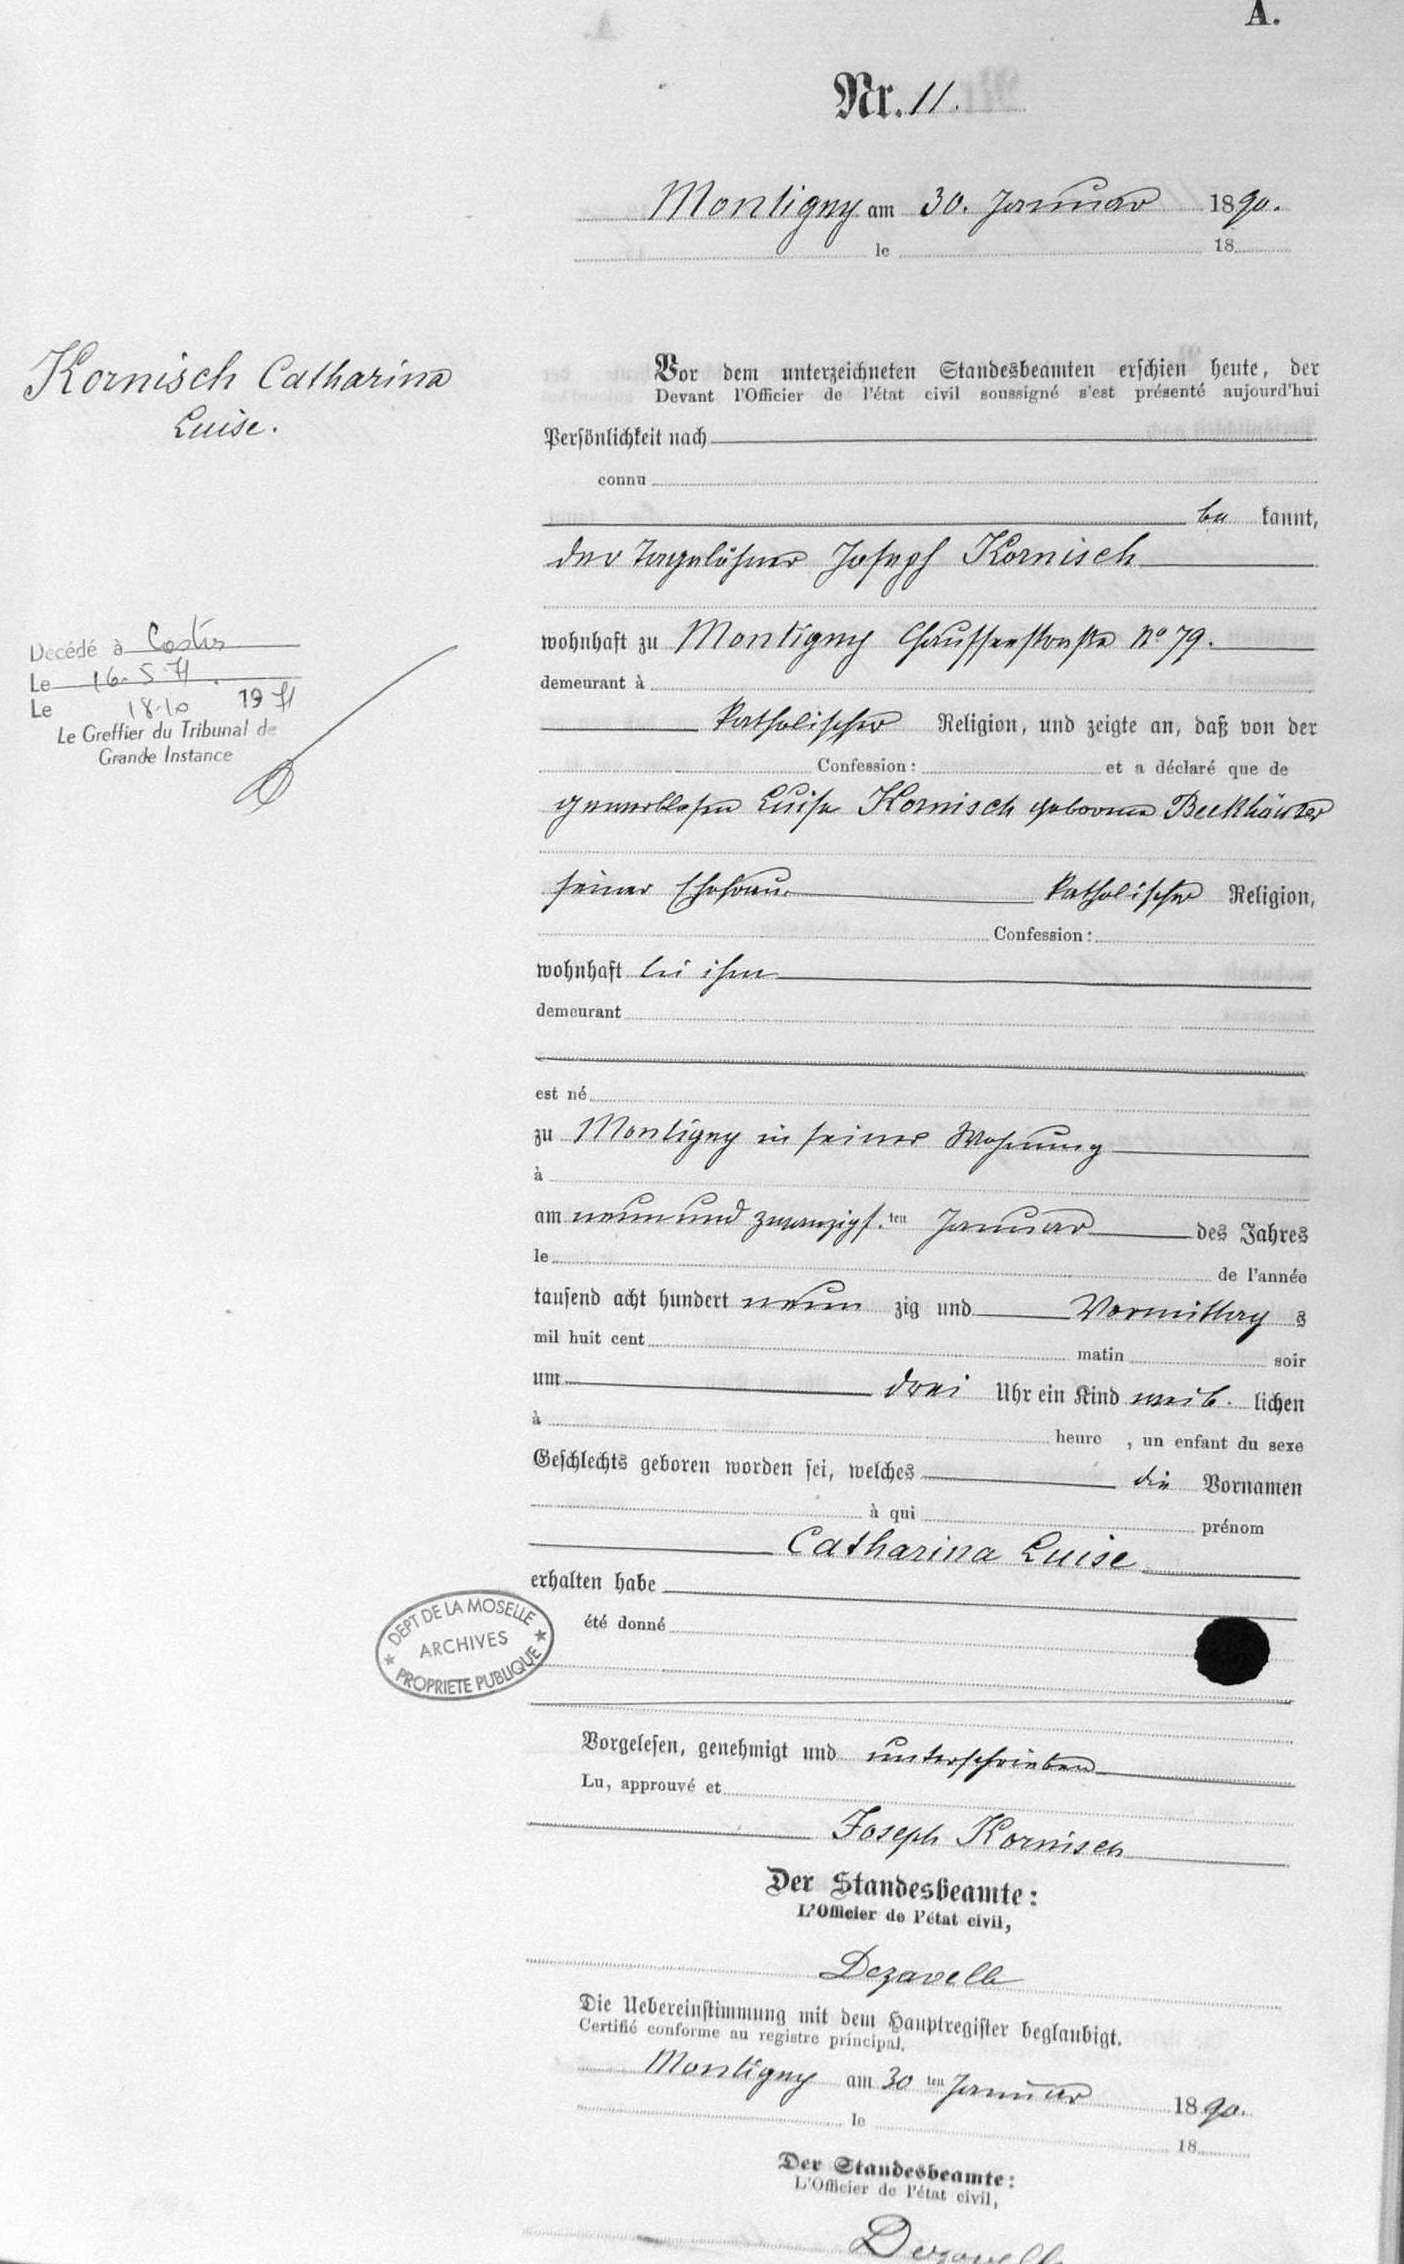 A.
Nr. 11.
Montigny am 30. Januar 1890.
le 18
Kornisch Catharina
Luise.
Vor dem unterzeichneten Standesbeamten erschien heute, der
Devant l'Officier de l'état civil soussigné s'est présenté aujourd'hui
Persönlichkeit nach
connu
be kannt,
der Tagelöhner Joseph Kornisch
wohnhaft zu Montigny Chausseestraße No 79.
demeurant à
Décédé à
Le 16. 5. 71
Le 18.10 1971
Le Greffier du Tribunal de
Grande Instance
katholischer Religion, und zeigte an, daß von der
Confession: et a déclaré que de
gewerblosen Luise Kornisch geborene Beckhäuser
seiner Ehefrau. katholischer Religion,
Confession:
wohnhaft bei ihm
demeurant
est né
zu Montigny in seiner Wohnung
à
am neunundzwanzigs.ten Januar des Jahres
le de l'année
tausend acht hundert neun zig und Vormittag s
mil huit cent matin soir
um drei Uhr ein Kind weib. lichen
à heure , un enfant du sexe
Geschlechts geboren worden sei, welches die Vornamen
à qui prénom
Catharina Luise
erhalten habe
été donné
DEPT DE LA MOSELLE
ARCHIVES
PROPRIETE PUBLIQUE
Vorgelesen, genehmigt und unterschrieben
Lu, approuvé et
Joseph Kornisch
Der Standesbeamte:
L'Officier de l'état civil,
Dezavelle
Die Uebereinstimmung mit dem Hauptregister beglaubigt.
Certifié conforme au registre principal.
Montigny am 30 ten Januar 1890.
le 18
Der Standesbeamte:
L'Officier de l'état civil,
Dezavelle